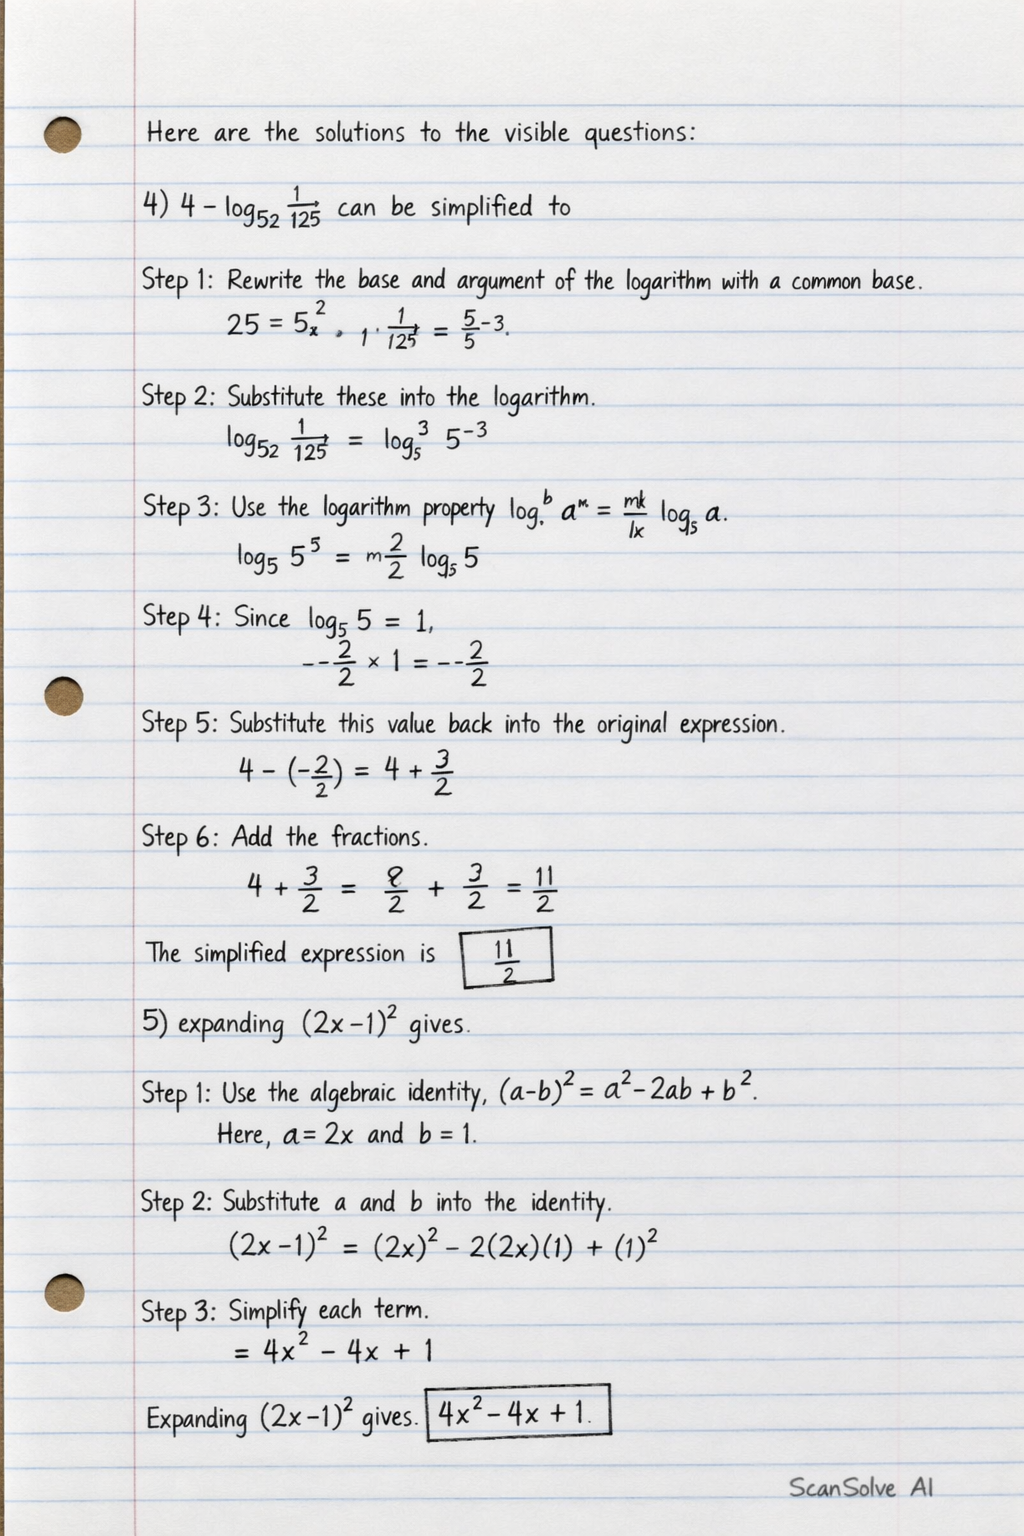 Here are the solutions to the visible questions:
4) 4 - log₅₂ 1/125 can be simplified to
Step 1: Rewrite the base and argument of the logarithm with a common base.
25 = 5ₓ² . 1 · 1/125 = 5/5⁻³.
Step 2: Substitute these into the logarithm.
log₅₂ 1/125 = log₅³ 5⁻³
Step 3: Use the logarithm property log.ᵇ aᵐ = mk/lx log₅ a.
log₅ 5⁵ = m 2/2 log₅ 5
Step 4: Since log₅ 5 = 1,
--2/2 × 1 = --2/2
Step 5: Substitute this value back into the original expression.
4 - (-2/2) = 4 + 3/2
Step 6: Add the fractions.
4 + 3/2 = 8/2 + 3/2 = 11/2
The simplified expression is 11/2
5) expanding (2x-1)² gives.
Step 1: Use the algebraic identity, (a-b)² = a² - 2ab + b².
Here, a = 2x and b = 1.
Step 2: Substitute a and b into the identity.
(2x-1)² = (2x)² - 2(2x)(1) + (1)²
Step 3: Simplify each term.
= 4x² - 4x + 1
Expanding (2x-1)² gives. 4x² - 4x + 1.
ScanSolve AI